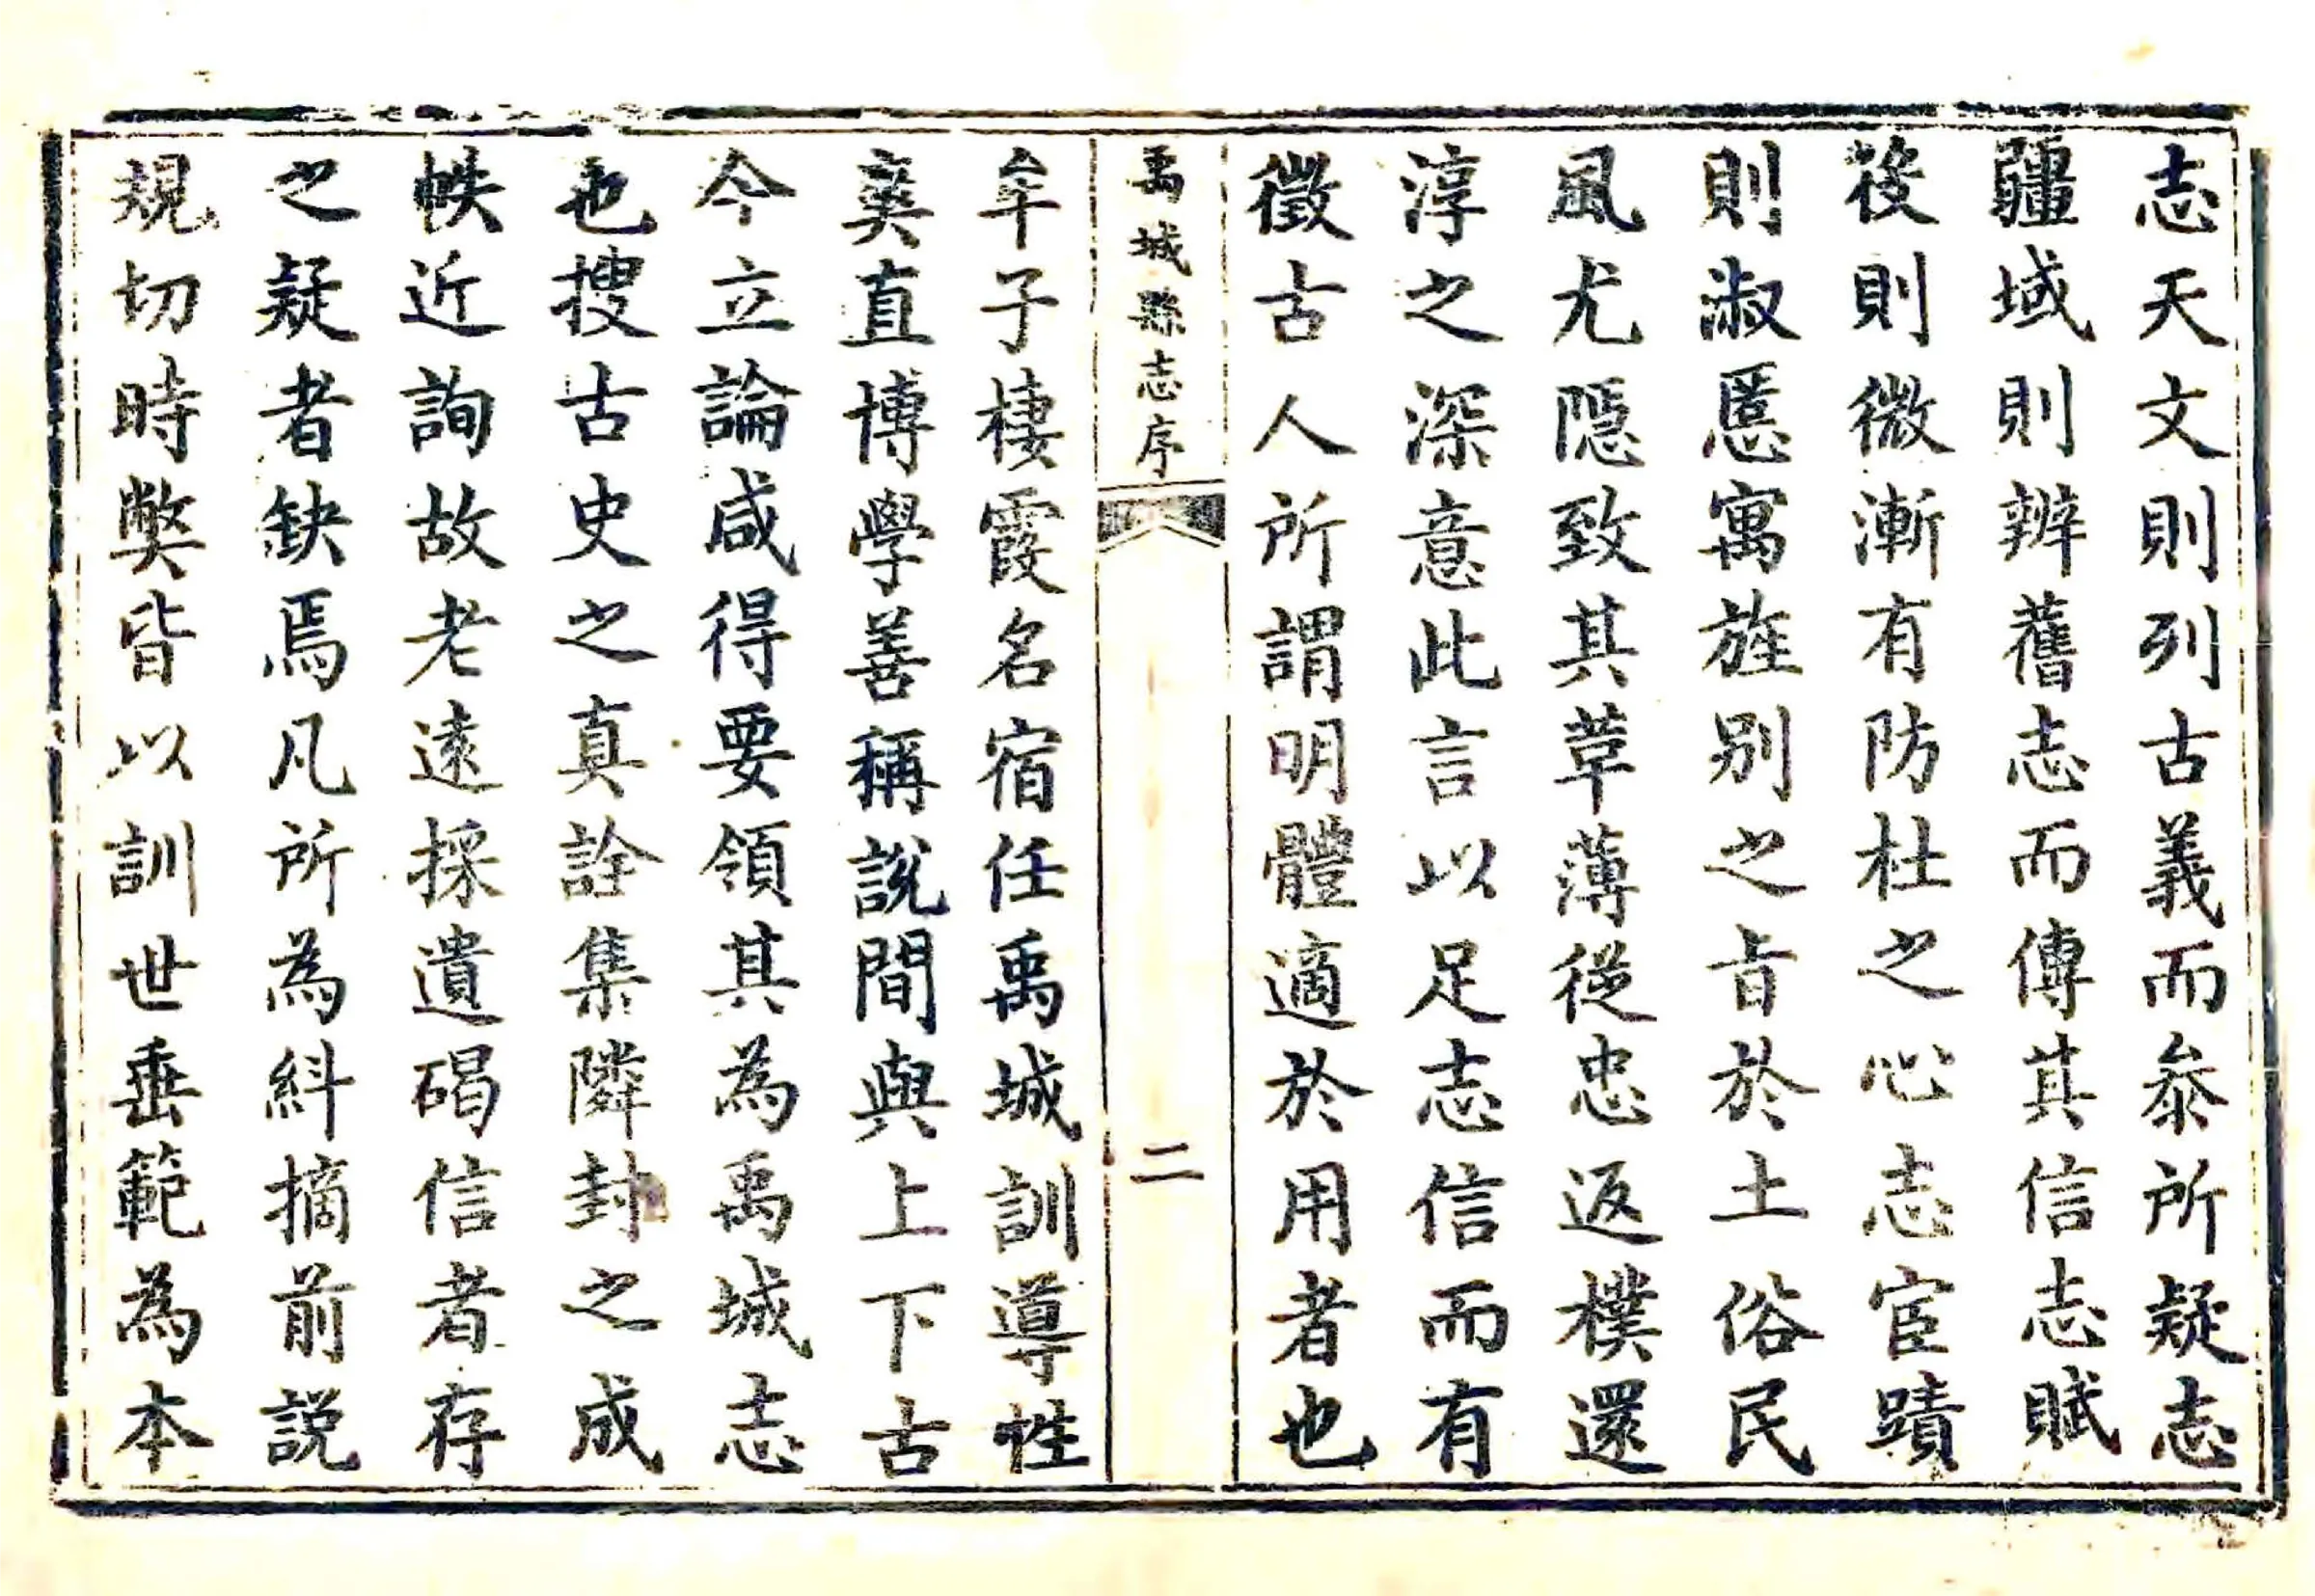 志天文則列古義而叅所疑志
疆域則辨舊志而傳其信志賦
役則微漸有防杜之心志宦蹟
則淑慝寓旌别之㫖於土俗民
風尤隠致其革薄從忠返樸還
淳之深意此言以足志信而有
徵古人所謂明體適於用者也
禹城縣志序
二
牟子棲霞名宿任禹城訓導性
爽直博學善稱說間與上下古
今立論咸得要領其為禹城志
也搜古史之真詮集隣封之成
帙近詢故老遠採遺碣信者存
之疑者缺焉凡所為糾摘前説
規切時獘皆以訓世垂範為本